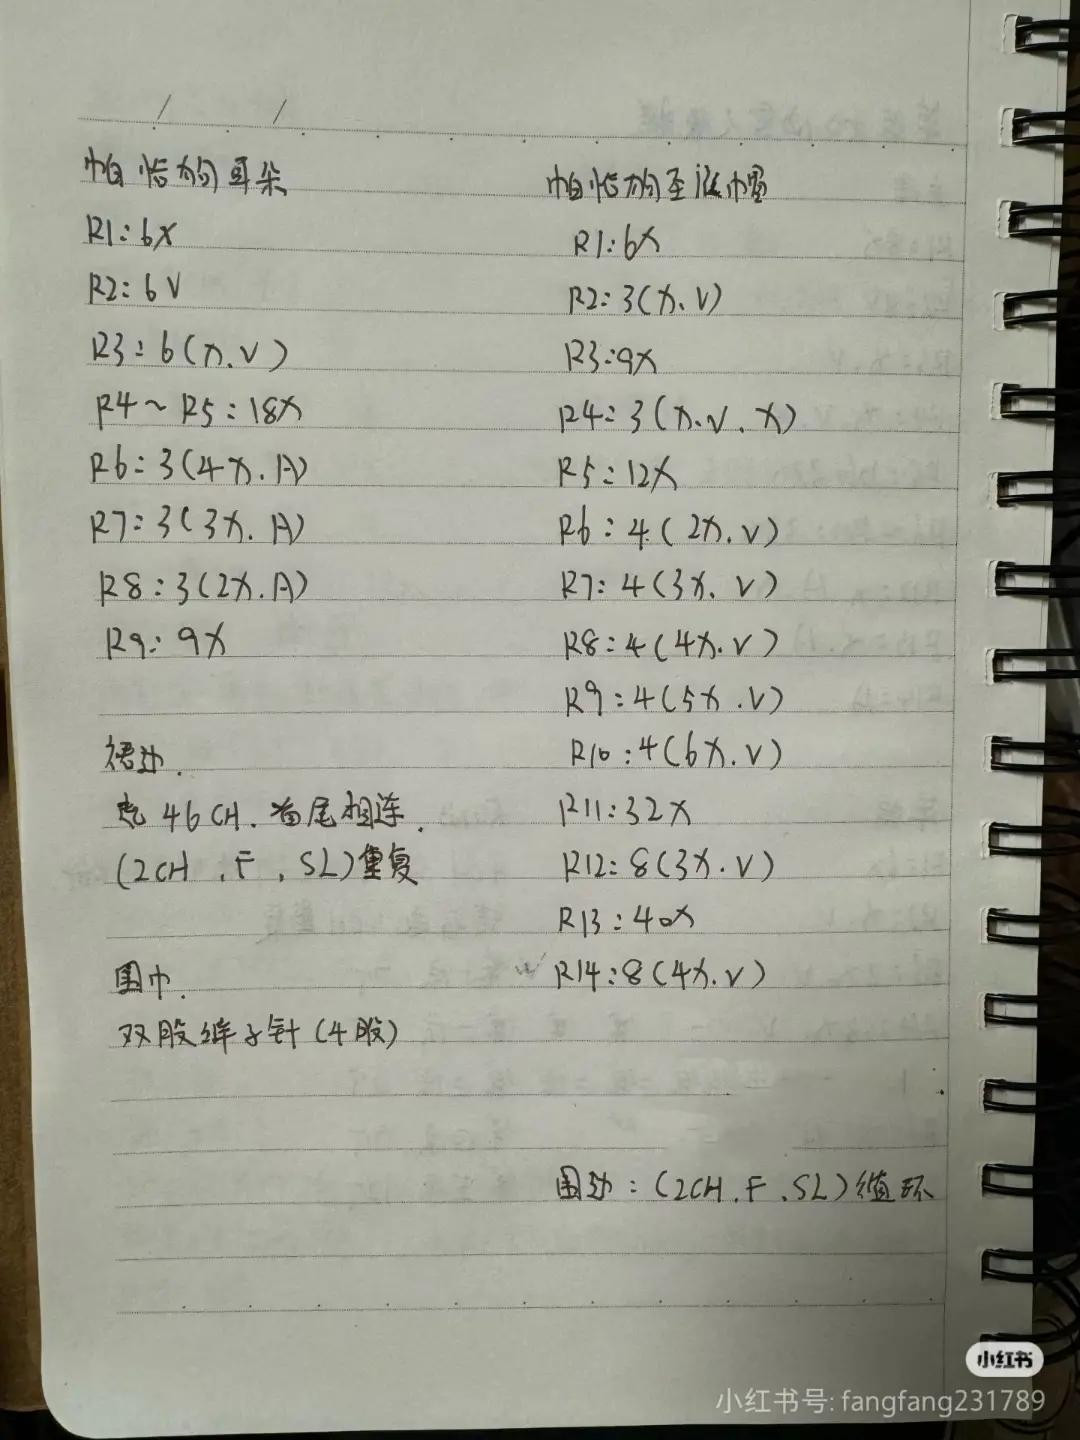 帕恰狗耳朵
R1:6X
R2:6V
R3:6(X.V)
R4~R5:18X
R6:3(4X.A)
R7:3(3X.A)
R8:3(2X.A)
R9:9X
裙边.
起46CH.首尾相连.
(2CH.F.SL)重复
围巾.
双股辫子针(4股)
帕恰狗圣诞帽
R1:6X
R2:3(X.V)
R3:9X
R4:3(X.V.X)
R5:12X
R6:4(2X.V)
R7:4(3X.V)
R8:4(4X.V)
R9:4(5X.V)
R10:4(6X.V)
R11:32X
R12:8(3X.V)
R13:40X
R14:8(4X.V)
围边:(2CH.F.SL)循环
小红书
小红书号:fangfang231789